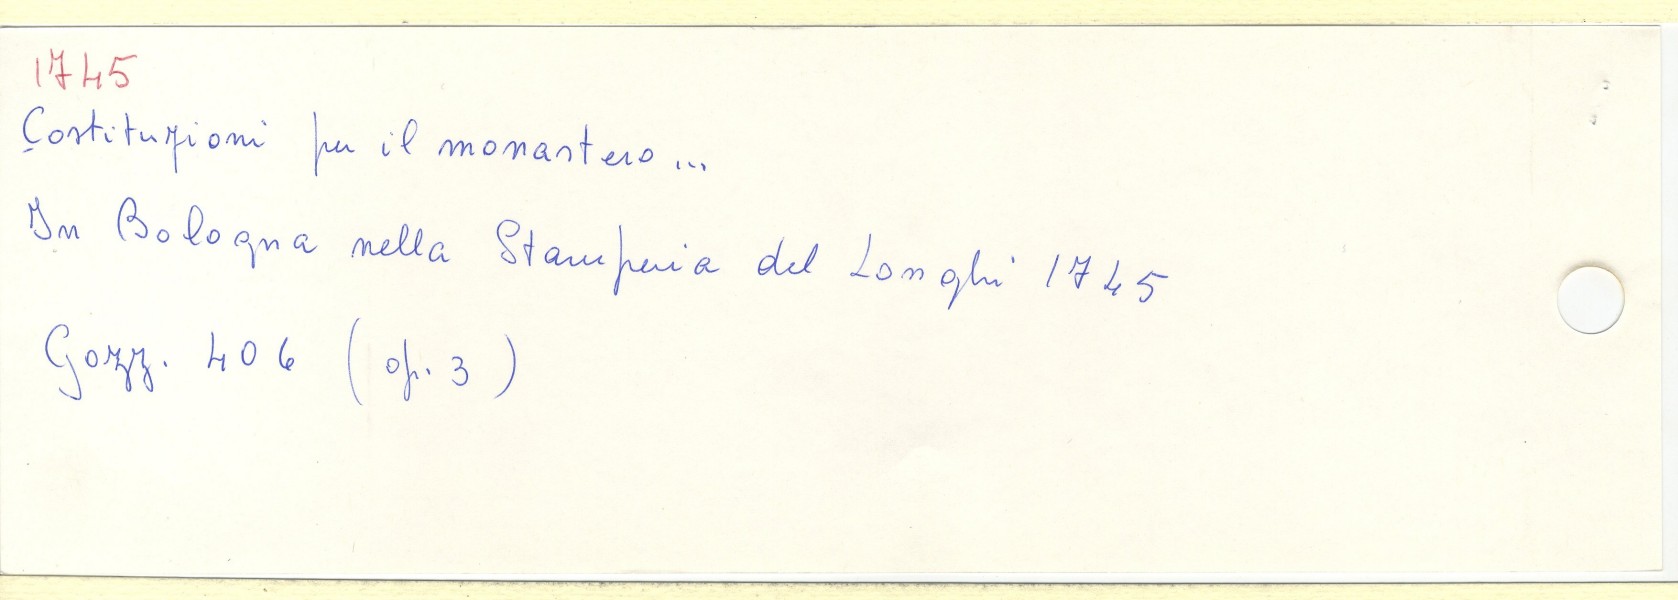 1745
Costituzioni per il monastero...
In Bologna nella Stamperia del Longhi 1745
Gozz. 406 (op. 3)